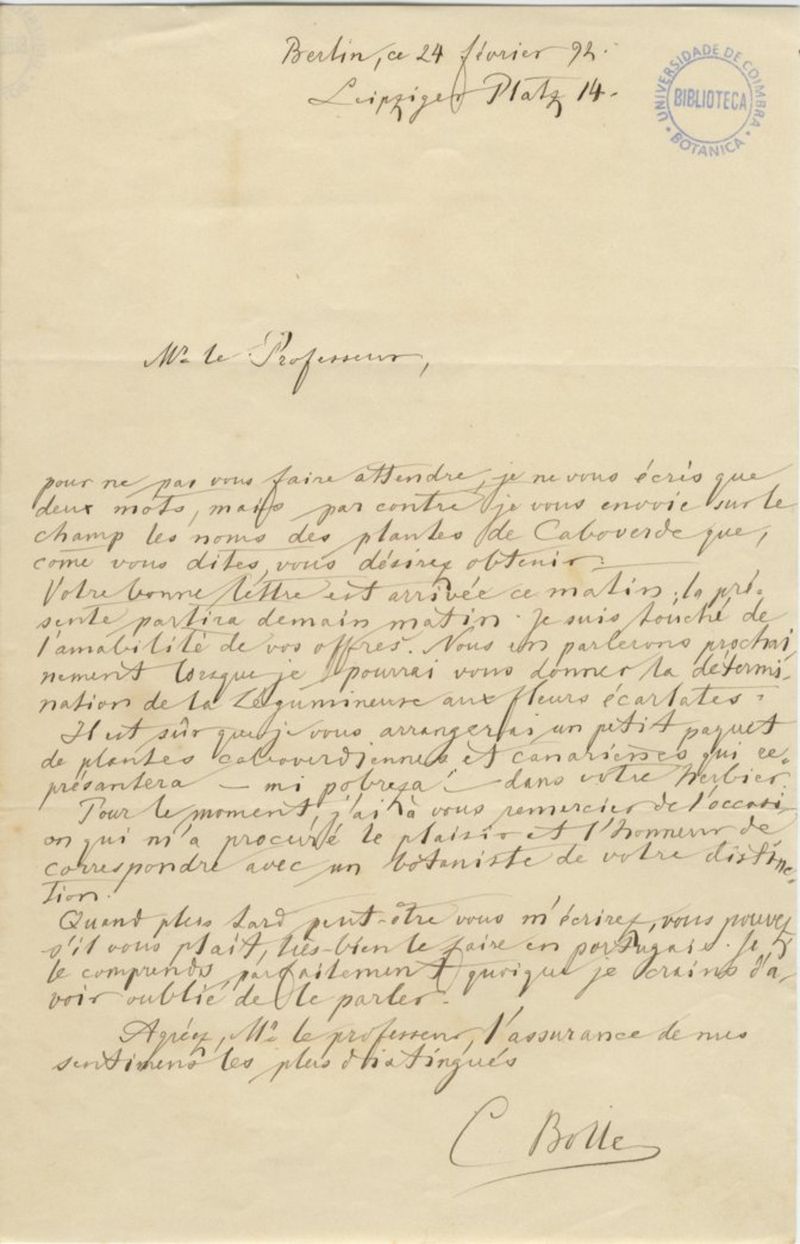 Berlin, ce 24 février 92.
Leipziger Platz 14.
UNIVERSIDADE DE COIMBRA
BIBLIOTECA
BOTANICA
Mr le Professeur,
pour ne pas vous faire attendre, je ne vous écris que
deux mots, mais par contre je vous envoie sur le
champ les noms des plantes de Caboverde que,
come vous dites, vous désirez obtenir.
Votre bonne lettre est arrivée ce matin; la pré-
sente partira demain matin. Je suis touché de
l'amabilité de vos offres. Nous en parlerons prochai
nement lorsque je pourrai vous donner la détermi-
nation de la Légumineuse aux fleurs écarlates.
Il est sûr que je vous arrangerai un petit paquet
de plantes caboverdiennes et canariènes qui re-
présantera – mi pobreza – dans votre herbier.
Pour le moment, j'ai à vous remercier de l'occasi-
on qui m'a procuré le plaisir et l'honneur de
correspondre avec un botaniste de votre distinc-
tion.
Quand plus tard peut-être vous m'écrirez, vous pouvez
s'il vous plait, très-bien le faire en portugais. Je
le comprends parfaitement quoique je crains d'a-
voir oublié de le parler.
Agréez, Mr le professeur, l'assurance de mes
sentimens les plus distingués
C Bolle